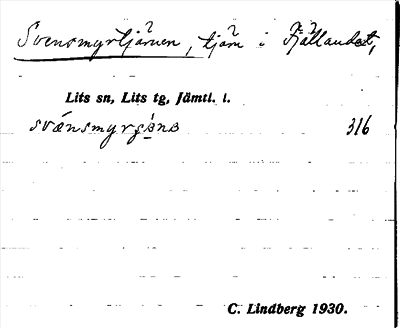 Svensmyrtjärnen, tjärn i Fjällandet,
Lits sn, Lits tg, Jämtl. l.
316
C. Lindberg 1930.